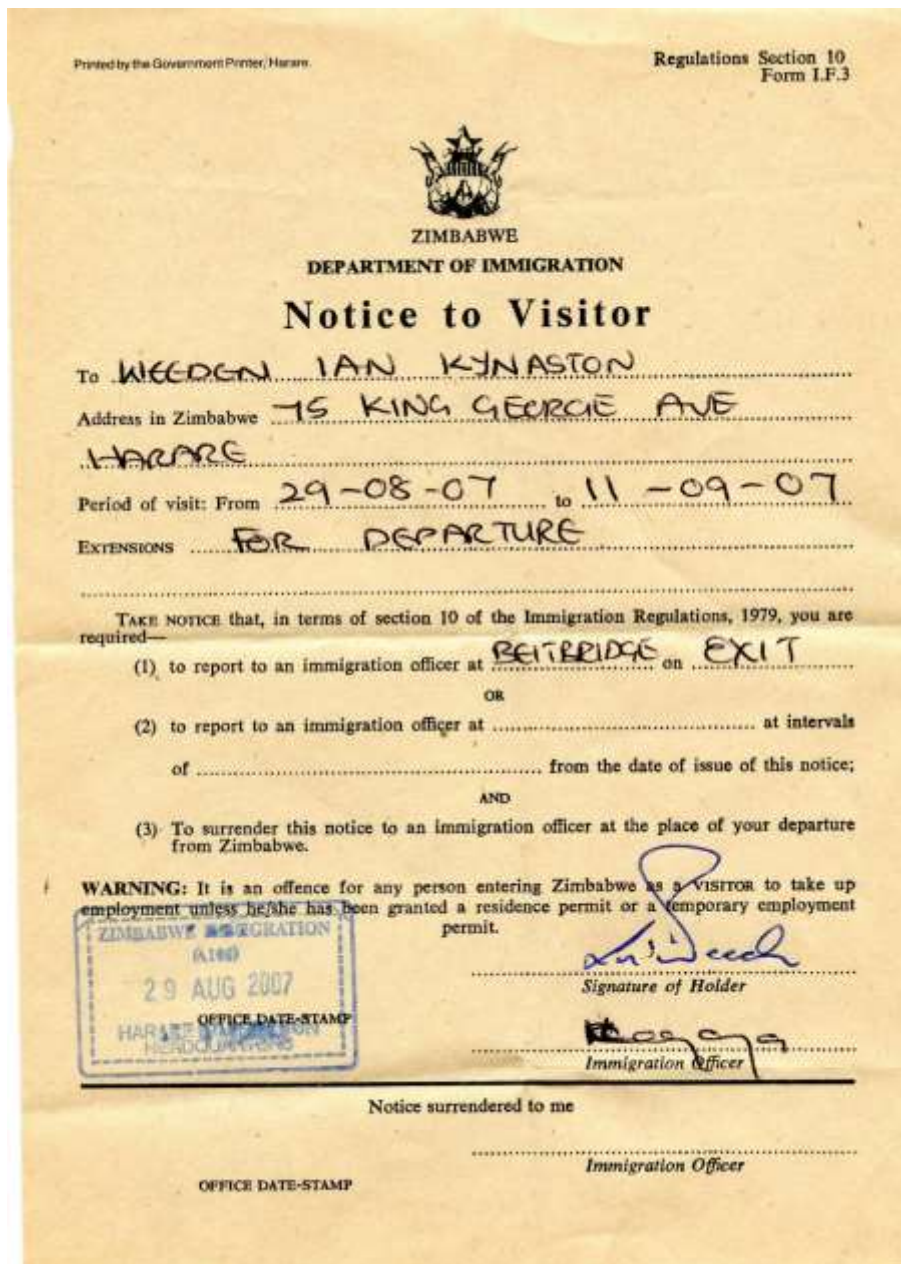 Printed by the Government Printer, Harare.
Regulations Section 10
Form I.F.3
ZIMBABWE
DEPARTMENT OF IMMIGRATION
Notice to Visitor
To WEEDEN IAN KYNASTON
Address in Zimbabwe 75 KING GEORGE AVE
HARARE
Period of visit: From 29-08-07 to 11-09-07
EXTENSIONS FOR DEPARTURE
TAKE NOTICE that, in terms of section 10 of the Immigration Regulations, 1979, you are
required—
(1) to report to an immigration officer at BEITBRIDGE on EXIT
OR
(2) to report to an immigration officer at ........ at intervals
of ........ from the date of issue of this notice;
AND
(3) To surrender this notice to an immigration officer at the place of your departure
from Zimbabwe.
WARNING: It is an offence for any person entering Zimbabwe as a VISITOR to take up
employment unless he/she has been granted a residence permit or a temporary employment
permit.
ZIMBABWE IMMIGRATION
29 AUG 2007
OFFICE DATE-STAMP
HARARE
HEADQUARTERS
Signature of Holder
Immigration Officer
Notice surrendered to me
Immigration Officer
OFFICE DATE-STAMP